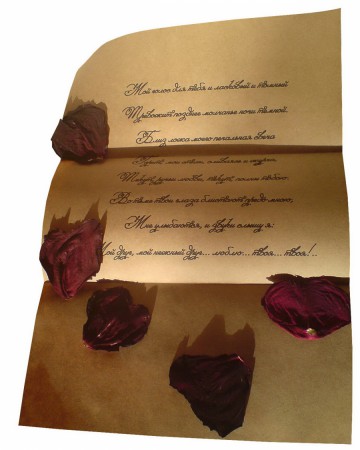 Мой голос для тебя и ласковый и томный
Тревожит позднее молчанье ночи темной.
Близ ложа моего печальная свеча
Горит; мои стихи, сливаясь и журча,
Текут, ручьи любви, текут, полны тобою.
Во тьме твои глаза блистают предо мною,
Мне улыбаются, и звуки слышу я:
Мой друг, мой нежный друг... люблю... твоя... твоя!..